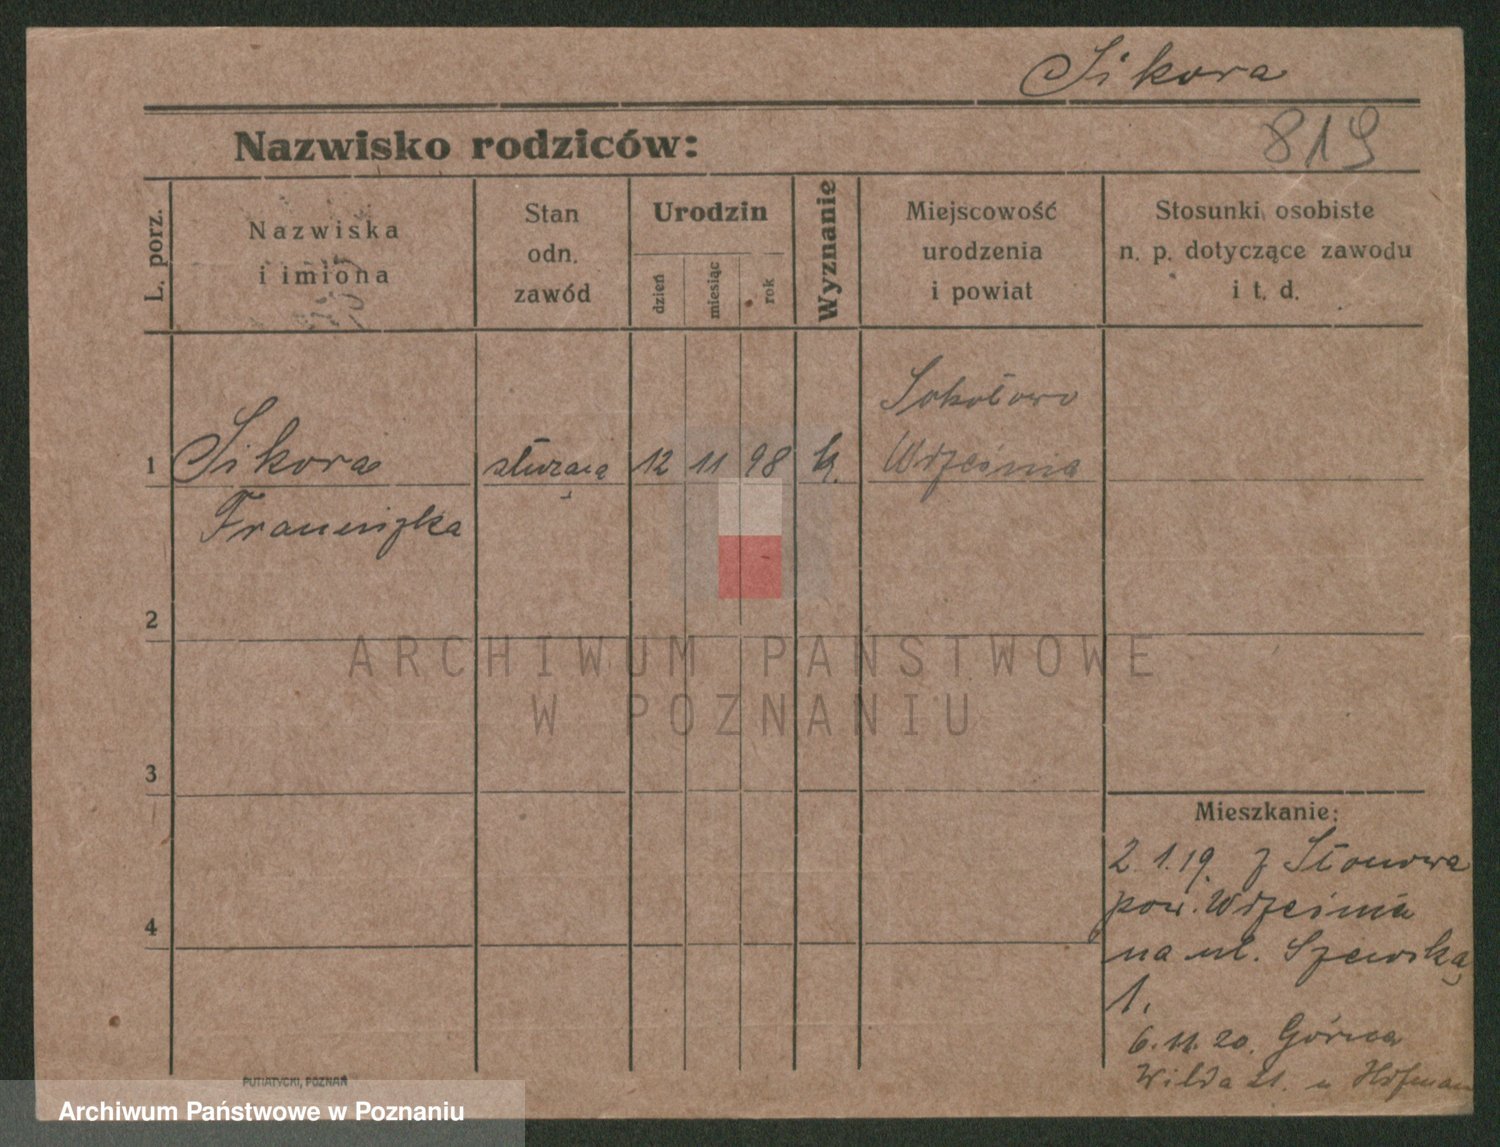 Sikora
Nazwisko rodziców:
819
L. porz.
Nazwiska
i imiona
Stan
odn.
zawód
Urodzin
dzień
miesiąc
rok
Wyznanie
Miejscowość
urodzenia
i powiat
Stosunki osobiste
n. p. dotyczące zawodu
i t. d.
1
Sikora
Franciszka
służącą
12 11 98
k.
Sokołowo
Września
2
3
4
Mieszkanie:
2.1.19. z Słonowa
pow. Września
na ul. Szewską
1.
6.11.20. Górna
Wilda 21. u Hofman
ARCHIWUM PAŃSTWOWE
W POZNANIU
PUTIATYCKI, POZNAŃ
Archiwum Państwowe w Poznaniu